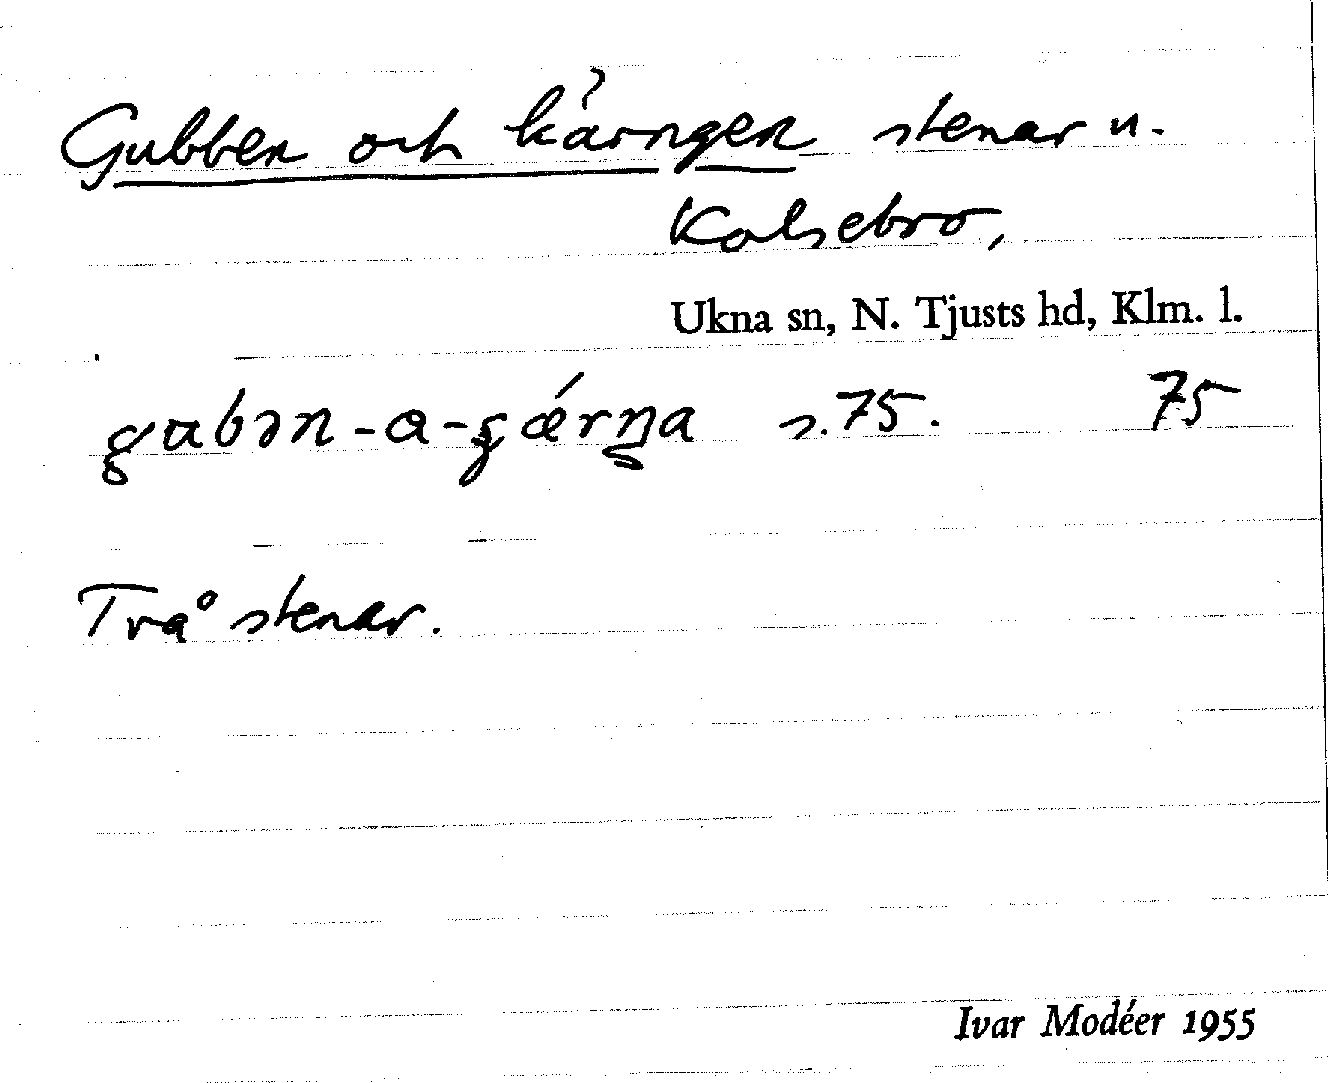 Gubben och kärngen stenar u.
Kolsebro,
Ukna sn, N. Tjusts hd, Klm. l.
s. 75. 75
Två stenar.
Ivar Modéer 1955